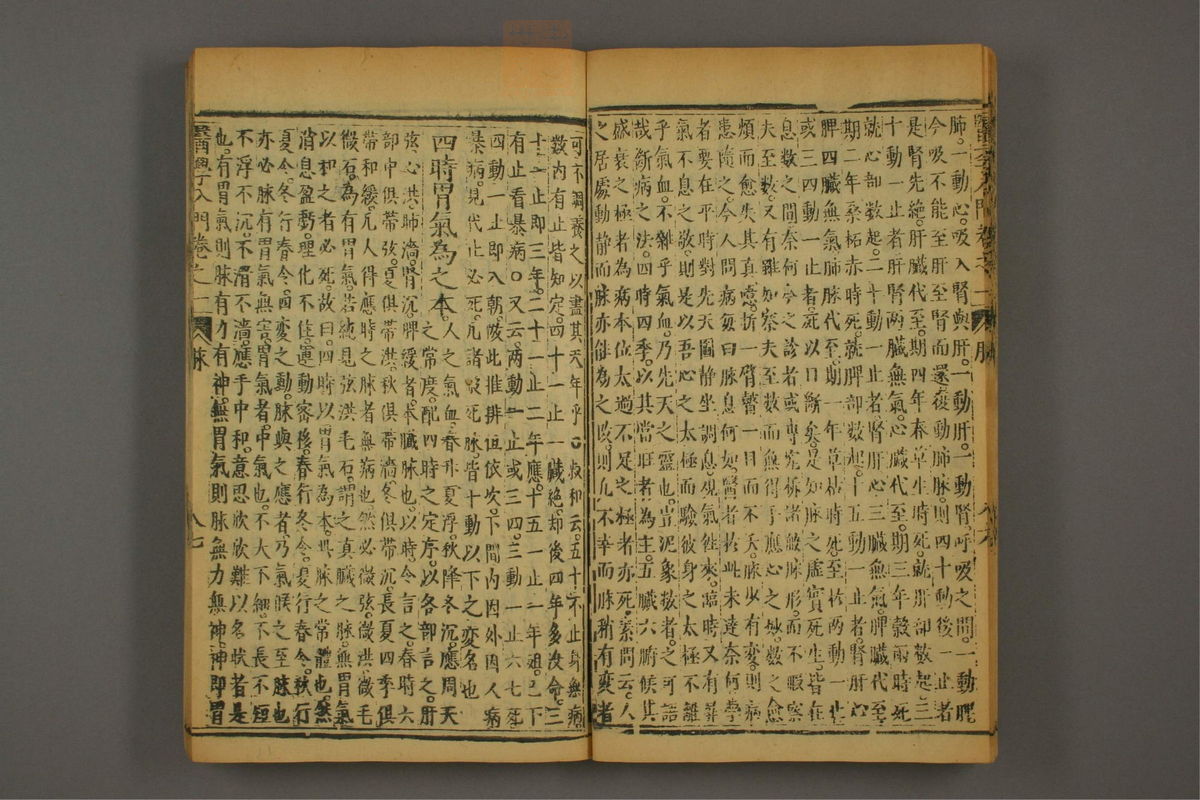 肺一動心吸入腎與肝一動肝一動腎呼吸之間一動脾
今吸不能至肝至腎而還復動肺脉則四十動後一止者
是腎先絶肝臟代至期四年春草生時死就肝部數起三
十動一止者肝腎兩臟無氣心臟代至期三年穀雨時死
就心部數起二十動一止者腎肝心三臟無氣脾臟代至
期二年桑柘赤時死就脾部數起十五動一止者腎肝心
脾四臟無氣肺脉代至期一年草枯時死至於兩動一止
或三四動一止者死以日斷矣是知脉之虛實死生皆在
息數之間奈何今之診者或專究㭊諸敗脉形而不暇察
夫至數又有雖如察夫至數而無得于應心之妙數之愈
煩而愈失其真噫折一臂瞽一目而不夭脉少有變則病
患隨之今人問病每曰脉息何如醫者於此未達奈何學
者要在平時對先天圖靜坐調息觀氣徃來臨時又有
氣不息之敬則是以吾心之太極而驗彼身之太極不離
乎氣血不雜乎氣血乃先天之靈也豈泥象數者之可語
哉斷病之法四時四季以其當旺者為主五臟六腑候其
盛衰之極者為病本位太過不足之極者亦死素問云人
之居處動靜而脉亦催為之改則凡不幸而脉稍有變者
可不調養之以盡其天年乎叔和云五十不止身無病
數內有止皆知定四十一止一臟絶却後四年多沒命三
十一止即三年二十一止二年應十五一止一年殂已下
有止看暴病又云兩動一止或三四三動一止六七死
四動一止即八朝以此推排但依次下間內因外因人病
暴病見代止必死凡諸敗死脉皆十動以下之變名也
四時胃氣為之本
人之氣血春升夏浮秋降冬沉應周天
之常度配四時之定序以各部言之肝
弦心洪肺濇腎沉脾緩者本臟脉也以時令言之春時六
部中俱帶弦夏俱帶洪秋俱帶濇冬俱帶沉長夏四季俱
帶和緩凡人得應時之脉者無病也然必微弦微洪微毛
微石為有胃氣若純見弦洪毛石謂之真臟之脉無胃氣
以和之者必死故曰四時以胃氣為本此脉之常體也然
消息盈虧理化不住運動密移春行冬令夏行春令秋行
夏令冬行春令四變之動脉與之應者乃氣候之至脉也
亦必脉有胃氣無害胃氣者中氣也不大不細不長不短
不浮不沉不滑不濇應手中和意思欣欣難以名狀者是
也有胃氣則脉有力有神無胃氣則脉無力無神神即胃
醫學入門卷之一
脉
八七